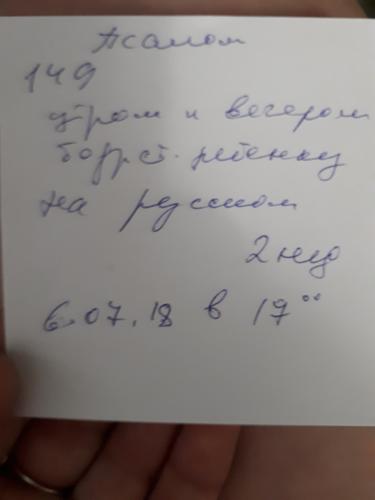 Псалом
149
утром и вечером
ребенку
на русском
2 нед
6.07.18 в 17⁰⁰